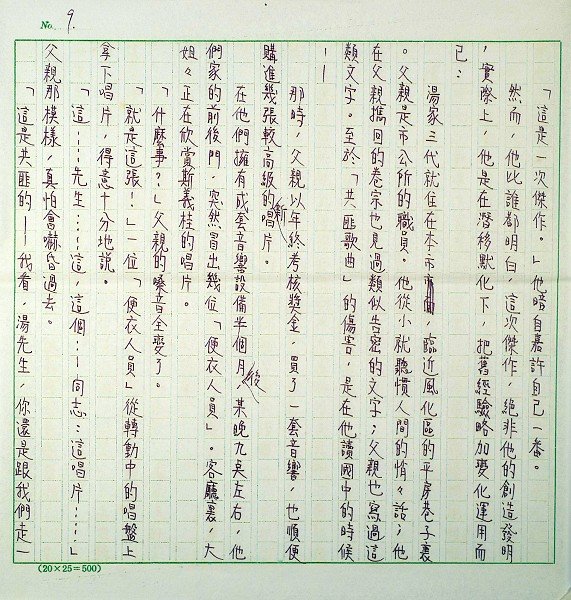 No. 9.
「這是一次傑作。」他暗自嘉許自己一番。
然而,他比誰都明白,這次傑作,絕非他的創造發明
,實際上,他是在潛移默化下,把舊經驗略加變化運用而
已:
湯家三代就住在本市,臨近風化區的平房巷子裏
。父親是市公所的職員。他從小就聽慣人間的悄々話;他
在父親攜回的卷宗也見過類似告密的文字;父親也寫過這
類文字。至於「共匪歌曲」的傷害,是在他讀國中的時候
——
那時,父親以年終考核獎金,買了一套音響,也順便
購進幾張較高級的新唱片。
在他們擁有成套音響設備半個月後,某晚九矣左右,他
們家的前後門,突然冒出幾位「便衣人員」。客廳裏,大
姐々正在欣賞斯義桂的唱片。
「什麼事?」父親的嗓音全變了。
「就是這張!」一位「便衣人員」從轉動中的唱盤上
拿下唱片,得意十分地說。
「這——先生……這,這個:—同志:這唱片……」
父親那模樣,真怕會嚇昏過去。
「這是共匪的——我看,湯先生,你還是跟我們走一
(20×25=500)